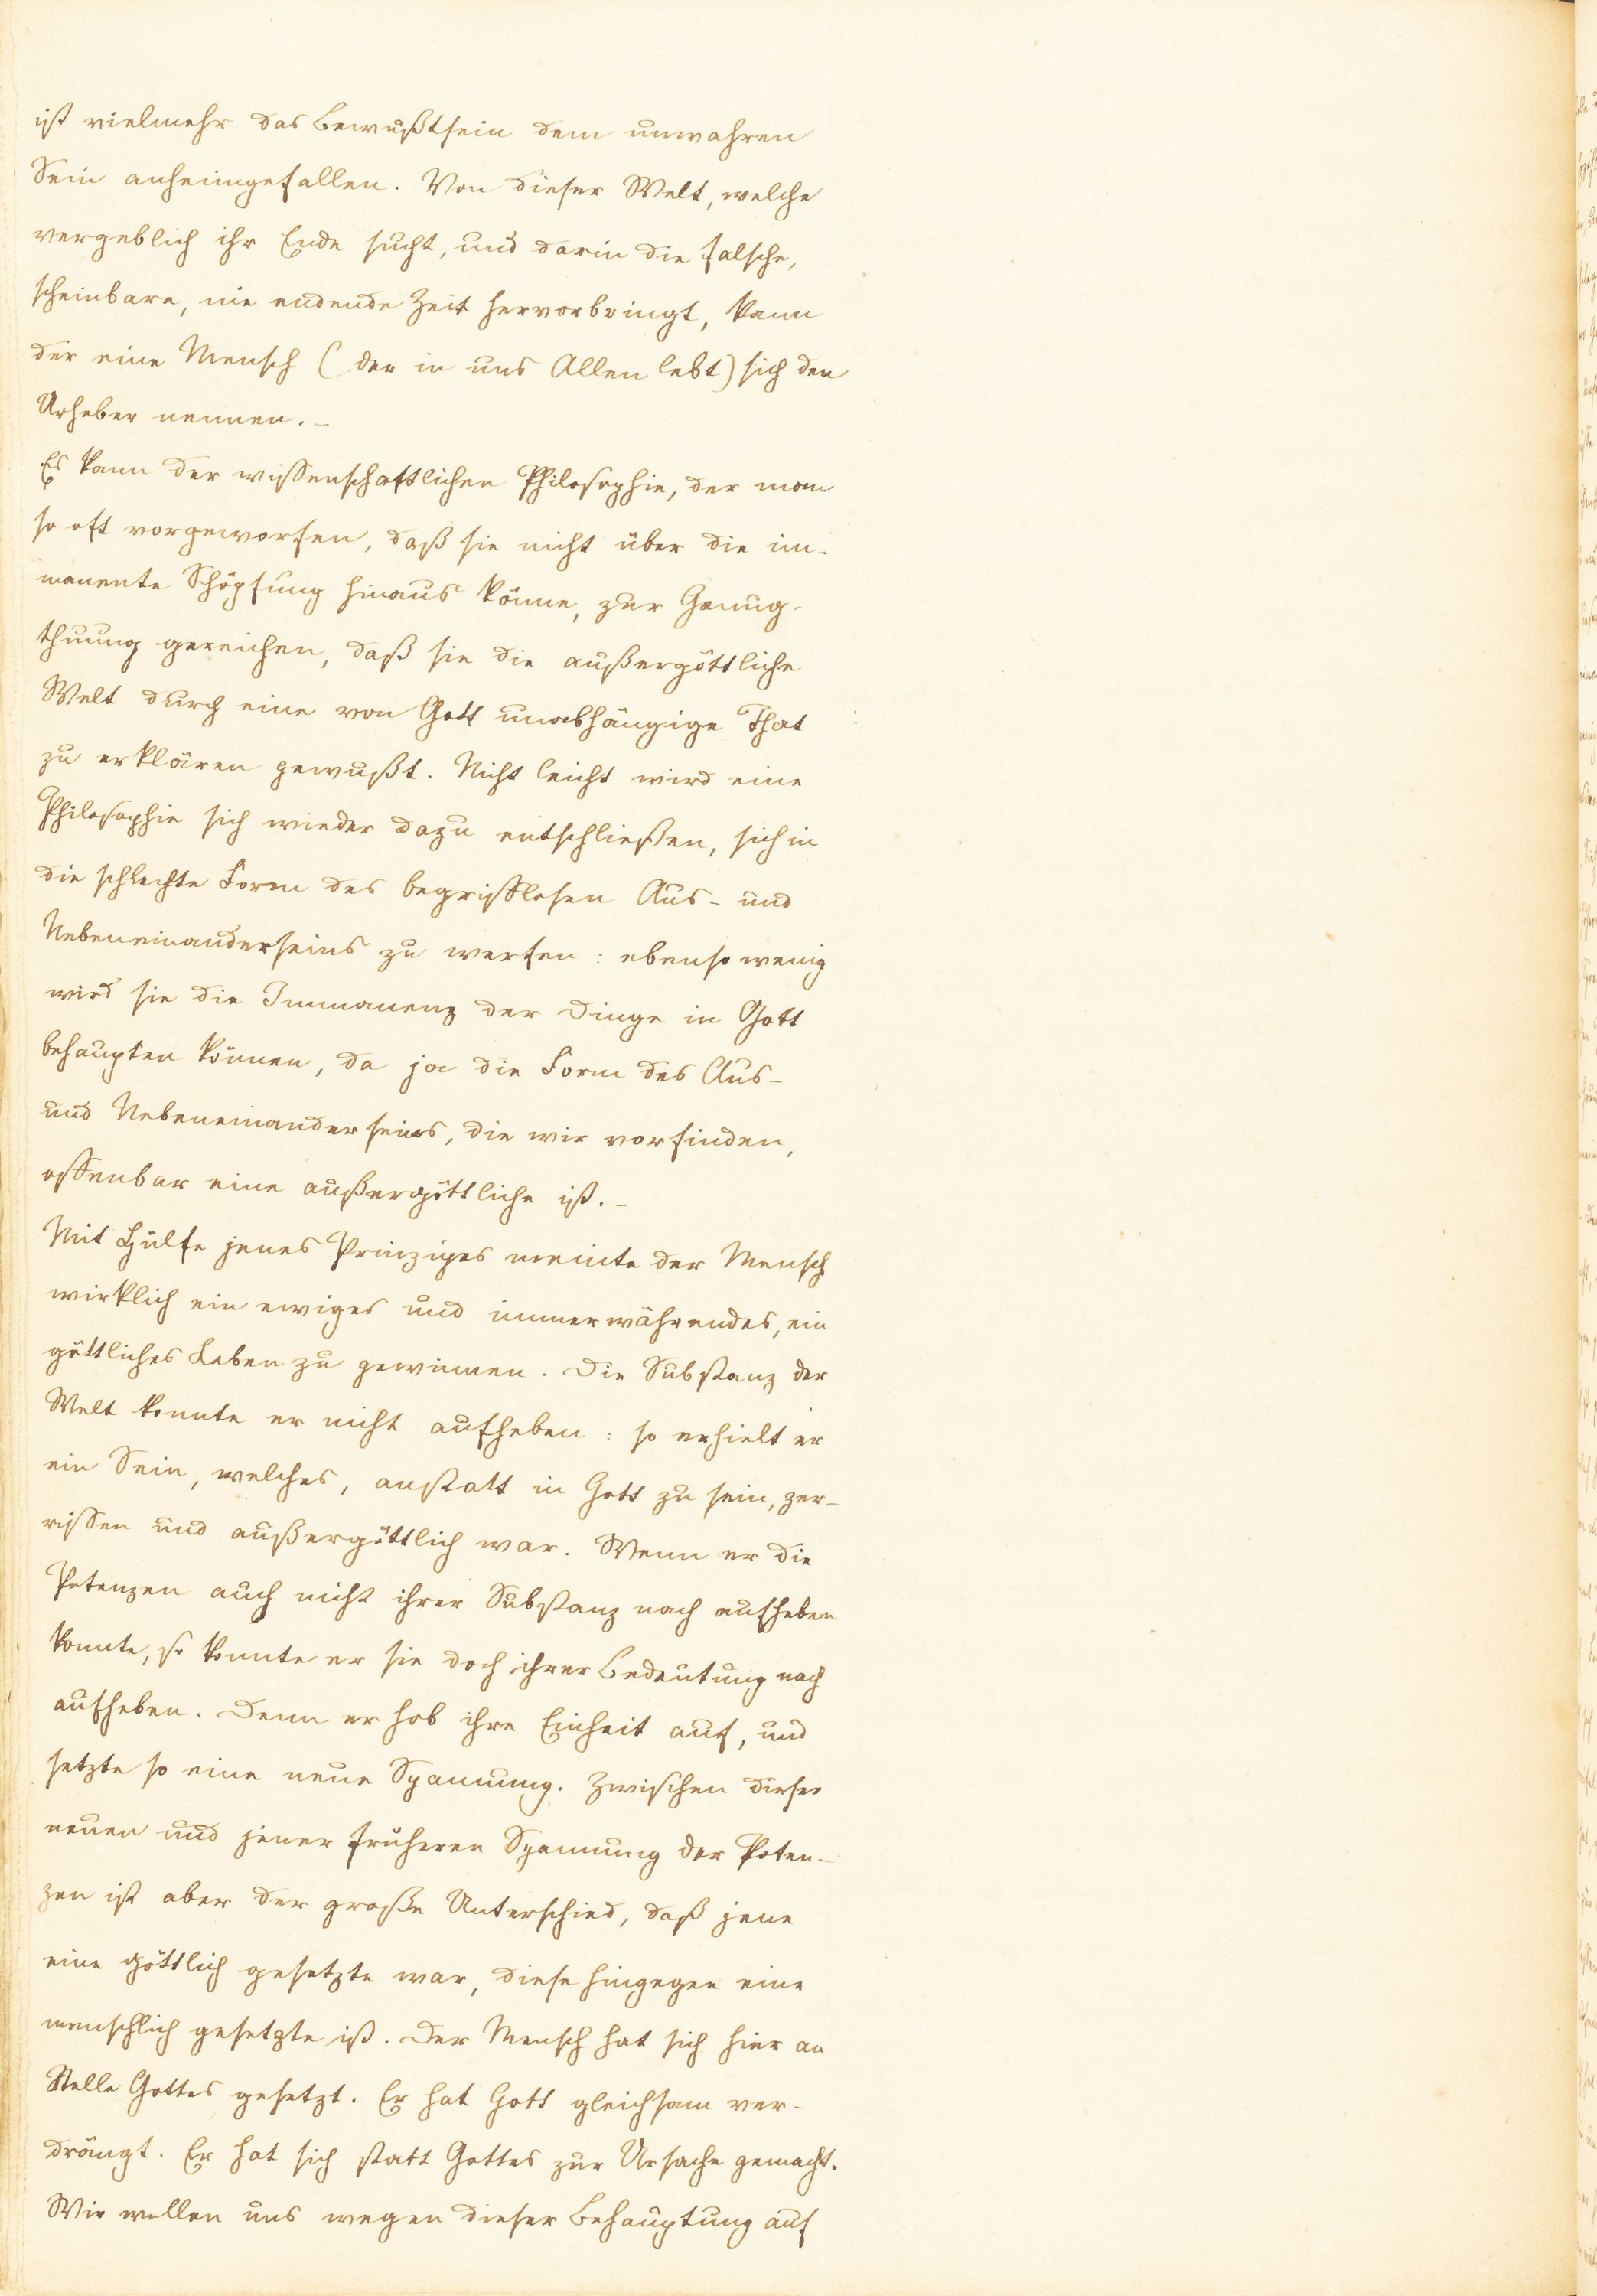 ist vielmehr das Bewußtsein dem unwahren
Sein anheimgefallen. Von dieser Welt, welche
vergeblich ihr Ende sucht, und darin die falsche,
scheinbare, nie endende Zeit hervorbringt, kann
der eine Mensch (der in uns Allen lebt) sich den
Urheber nennen. –
Es kann der wissenschaftlichen Philosophie, der man
so oft vorgeworfen, daß sie nicht über die im-
manente Schöpfung hinaus könne, zur Genug-
thuung gereichen, daß sie die außergöttliche
Welt durch eine von Gott unabhängige That
zu erklären gewußt. Nicht leicht wird eine
Philosophie sich wieder dazu entschließen, sich in
die schlechte Form des begrifflosen Aus- und
Nebeneinanderseins zu werfen: ebenso wenig
wird sie die Immanenz der Dinge in Gott
behaupten können, da ja die Form des Aus-
und Nebeneinanderseins, die wir vorfinden,
offenbar eine außergöttliche ist. –
Mit Hülfe jenes Prinzipes meinte der Mensch
wirklich ein ewiges und immerwährendes, ein
göttliches Leben zu gewinnen. Die Substanz der
Welt konnte er nicht aufheben: so erhielt er
ein Sein, welches, anstatt in Gott zu sein, zer-
rissen und außergöttlich war. Wenn er die
Potenzen auch nicht ihrer Substanz nach aufheben
konnte, so konnte er sie doch ihrer Bedeutung nach
aufheben. Denn er hob ihre Einheit auf, und
setzte so eine neue Spannung. Zwischen dieser
neuen und jener früheren Spannung der Poten-
zen ist aber der große Unterschied, daß jene
eine göttlich gesetzte war, diese hingegen eine
menschlich gesetzte ist. Der Mensch hat sich hier an
Stelle Gottes gesetzt. Er hat Gott gleichsam ver-
drängt. Er hat sich statt Gottes zur Ursache gemacht.
Wir wollen uns wegen dieser Behauptung auf